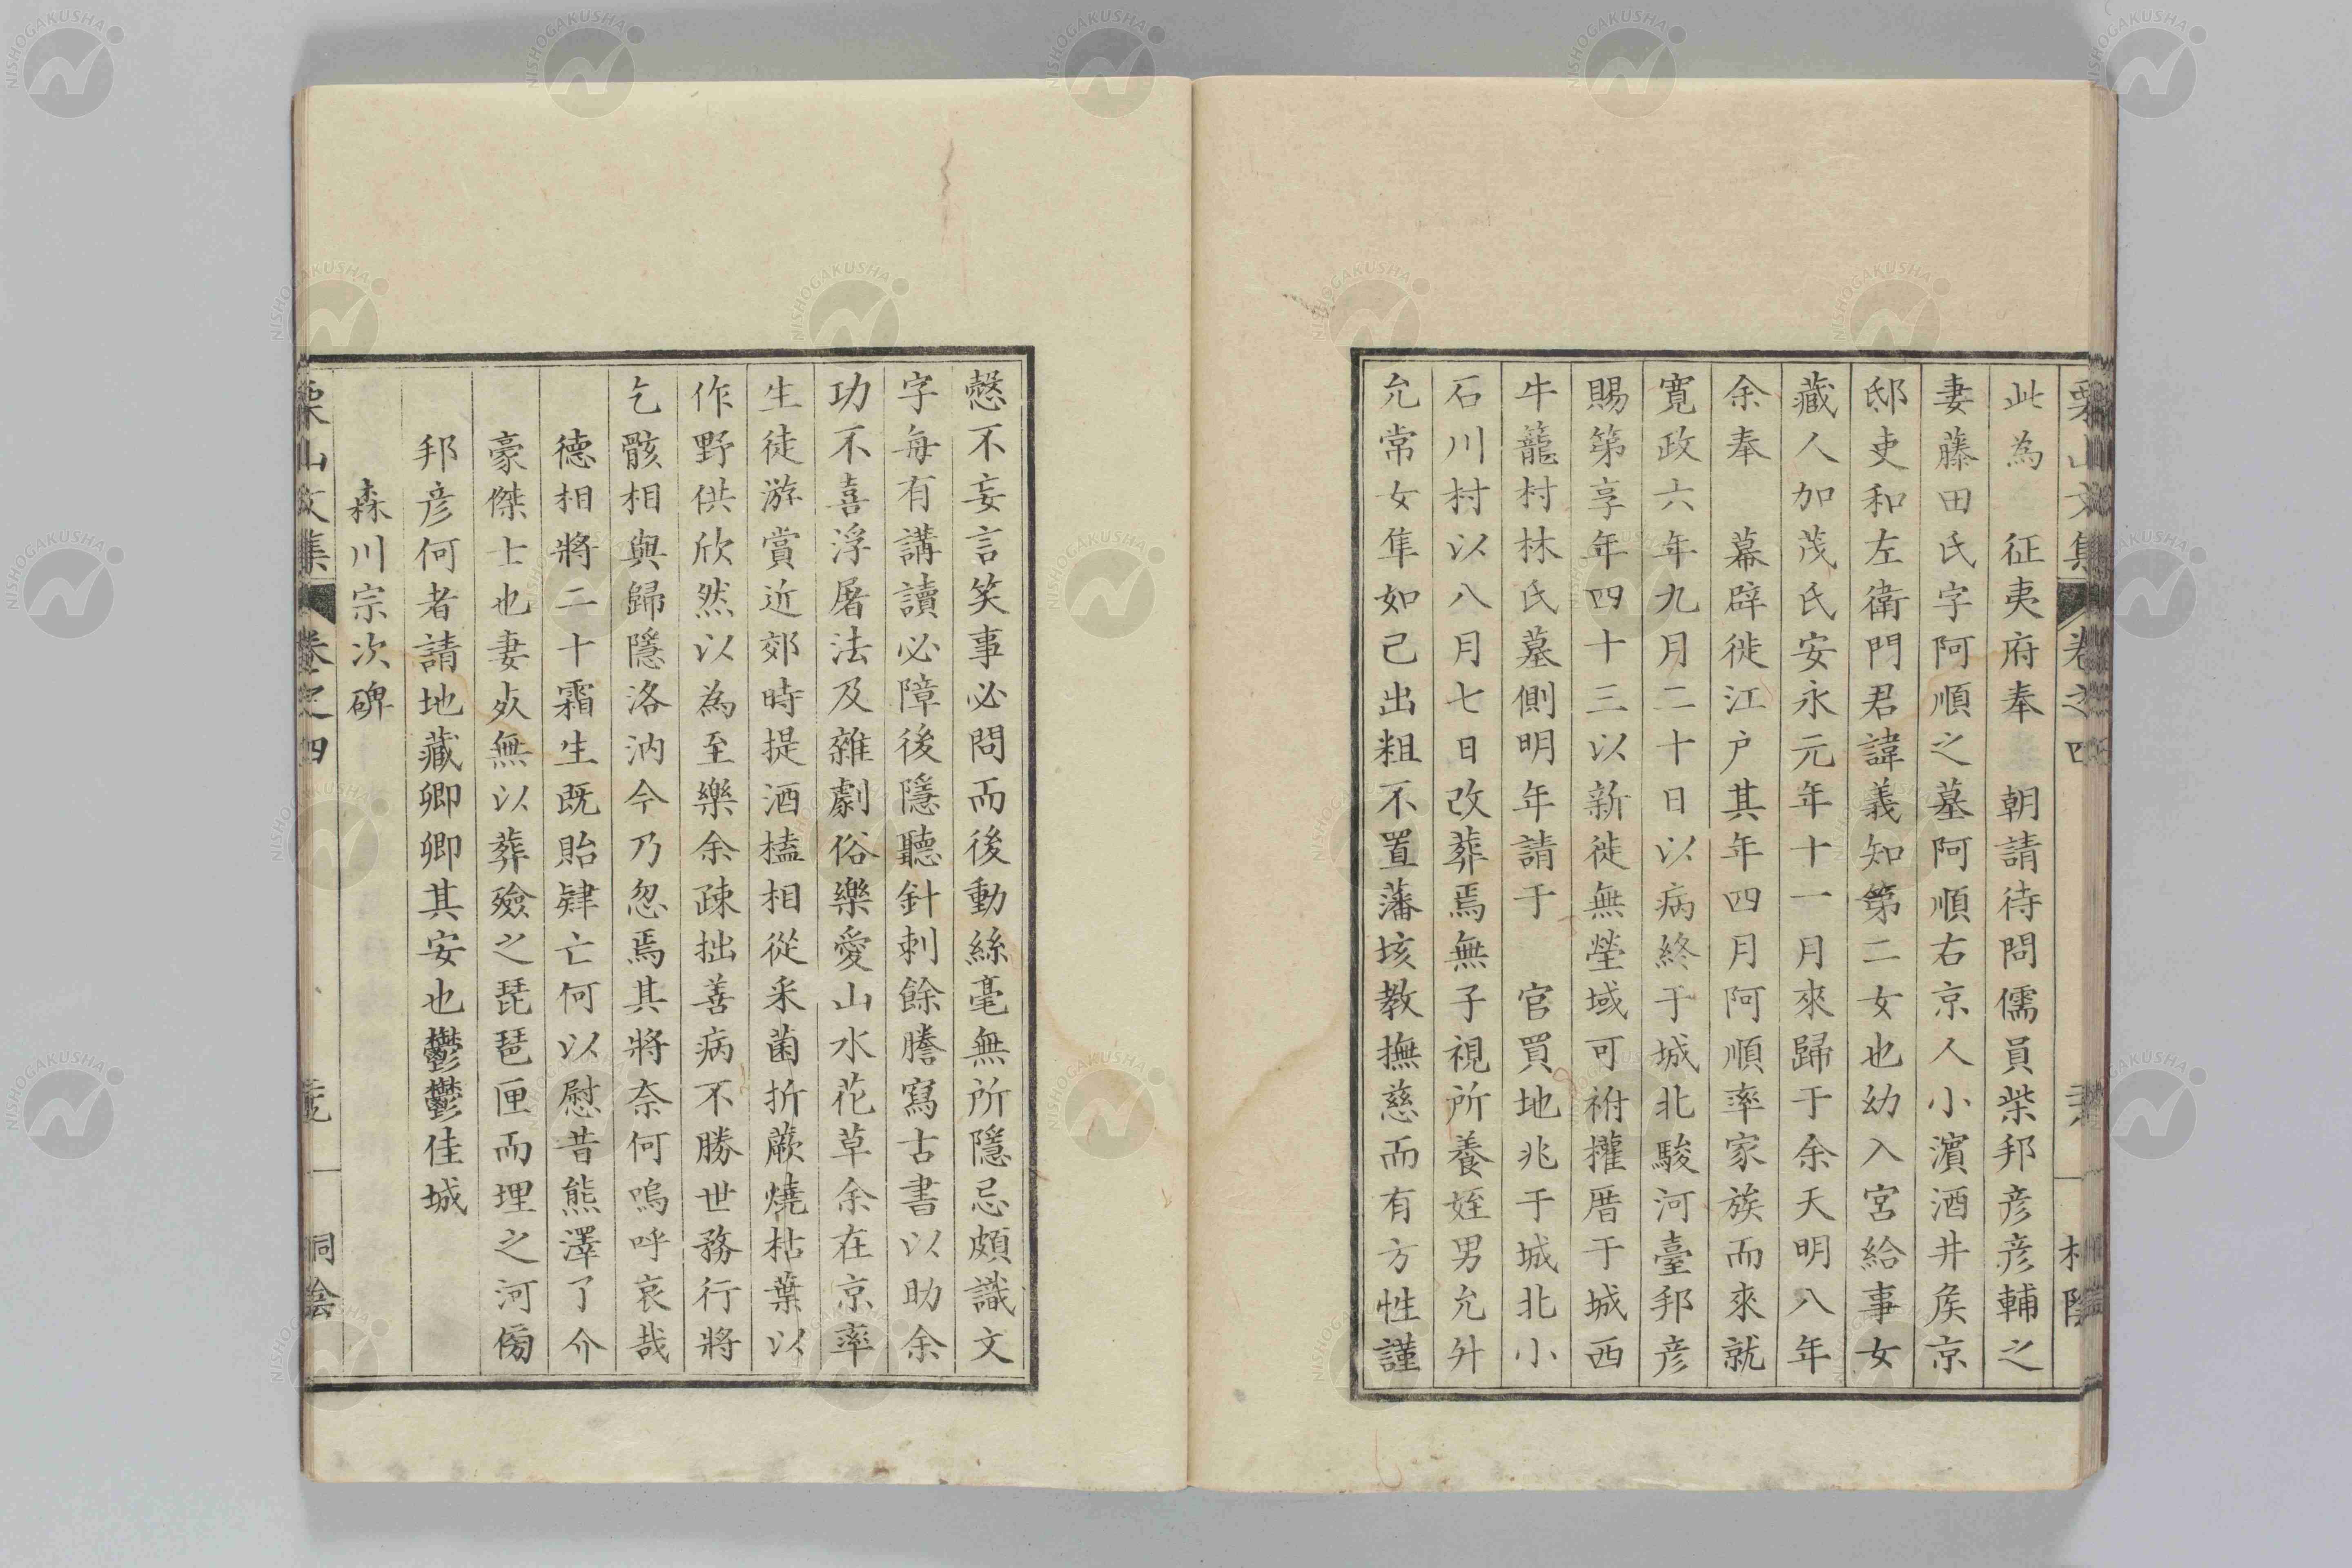 此為　征夷府奉　朝請待問儒員柴邦彦彦輔之
妻藤田氏字阿順之墓阿順右京人小濵酒井矦京
邸吏和左衛門君諱義知第二女也幼入宮給事女
藏人加茂氏安永元年十一月來歸于余天明八年
余奉　幕辟徙江户其年四月阿順率家族而來就
寛政六年九月二十日以病終于城北駿河臺邦彦
賜第享年四十三以新徙無塋域可祔攉厝于城西
牛籠村林氏墓側明年請于　官買地兆于城北小
石川村以八月七日改葬焉無子視所養姪男允升
允常女隼如己出粗不置藩垓教撫慈而有方性謹
愨不妄言笑事必問而後動絲毫無所隱忌頗識文
字每有講讀必障後隱聽針刺餘謄寫古書以助余
功不喜浮屠法及雜劇俗樂愛山水花草余在京率
生徒游賞近郊時提酒榼相從釆菌折蕨燒枯葉以
作野供欣然以為至樂余疎拙善病不勝世務行將
乞骸相與歸隱洛汭今乃忽焉其將奈何嗚呼哀哉
德相將二十霜生既貽肄亡何以慰昔熊澤了介
豪傑士也妻歺無以葬殮之琵琶匣而埋之河傍
邦彦何者請地藏卿卿其安也鬱鬱佳城
森川宗次碑
栗山文集　卷之四